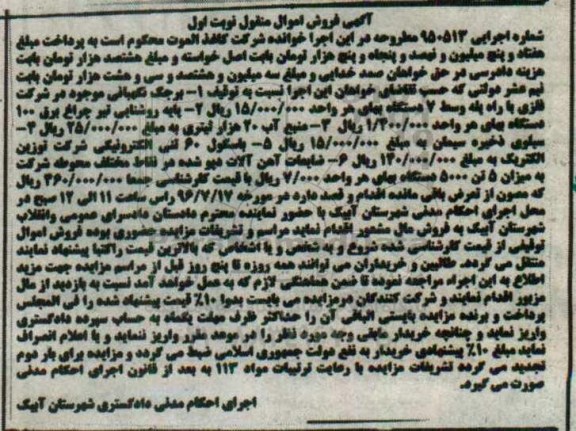 آگهی فروش اموال منقول نوبت اول
شماره اجرایی ۹۵۰۵۱۳ مطروحه در این اجرا خوانده شرکت کاغذ الموت محکوم است به پرداخت مبلغ
هفتاد و پنج میلیون و نهصد و پنجاه و پنج هزار تومان بابت اصل خواسته و مبلغ هشتصد هزار تومان بابت
هزینه دادرسی در حق خواهان صمد خدایی و مبلغ سه میلیون و هشتصد و سی و هشت هزار تومان بابت
نیم عشر دولتی که حسب تقاضای خواهان این اجرا نسبت به توقیف ۱- برجک نگهبانی موجود در شرکت
فلزی با راه پله وسط ۷ دستگاه بهای هر واحد ۱۵/۰۰۰/۰۰۰ ریال ۲- پایه روشنایی تیر چراغ برق ۱۰۰
دستگاه بهای هر واحد ۱/۴۰۰/۰۰۰ ریال ۳- منبع آب ۲۰ هزار لیتری به مبلغ ۲۵/۰۰۰/۰۰۰ ریال ۴-
سیلوی ذخیره سیمان به مبلغ ۱۵/۰۰۰/۰۰۰ ریال ۵- باسکول ۶۰ تنی الکترونیکی شرکت توزین
الکتریک به مبلغ ۱۴۰/۰۰۰/۰۰۰ ریال ۶- ضایعات آهن آلات دپو شده در نقاط مختلف محوطه شرکت
به میزان ۵ تن ۵۰۰۰ دستگاه بهای هر واحد ۷/۰۰۰ ریال با قیمت کارشناسی جمعا ۴۶۰/۰۰۰/۰۰۰ ریال
که مصون از تعرض باقی مانده اقدام و قصد دارد در مورخه ۹۶/۷/۱۷ راس ساعت ۱۱ الی ۱۲ صبح در
محل اجرای احکام مدنی شهرستان آبیک با حضور نماینده محترم دادستان دادسرای عمومی وانقلاب
شهرستان آبیک به فروش مال مشهور اقدام نماید مراسم و تشریفات مزایده حضوری بوده فروش اموال
توقیفی از قیمت کارشناسی شده شروع و به شخص و یا اشخاصی که بالاترین قیمت راکتبا پیشنهاد نمایند
منتقل می گردد. طالبین و خریداران می توانند همه روزه تا پنج روز قبل از مراسم مزایده جهت مزید
اطلاع به این اجراء مراجعه نموده تا ضمن هماهنگی لازم که به عمل خواهد آمد نسبت به بازدید از مال
مزبور اقدام نمایند و شرکت کنندگان درمزایده می بایست بدوا ۱۰٪ قیمت پیشنهاد شده را فی المجلس
پرداخت و برنده مزایده بایستی الباقی آن را حداکثر ظرف مهلت یکماه به حساب سپرده دادگستری
واریز نماید و چنانچه خریدار مابقی وجه مورد نظر را در موعد مقرر واریز ننماید و یا اعلام انصراف
نماید مبلغ ۱۰٪ پیشنهادی خریدار به نفع دولت جمهوری اسلامی ضبط می گردد و مزایده برای بار دوم
تجدید می گردد تشریفات مزایده با رعایت ترتیبات مواد ۱۱۳ به بعد از قانون اجرای احکام مدنی
صورت می گیرد.
اجرای احکام مدنی دادگستری شهرستان آبیک